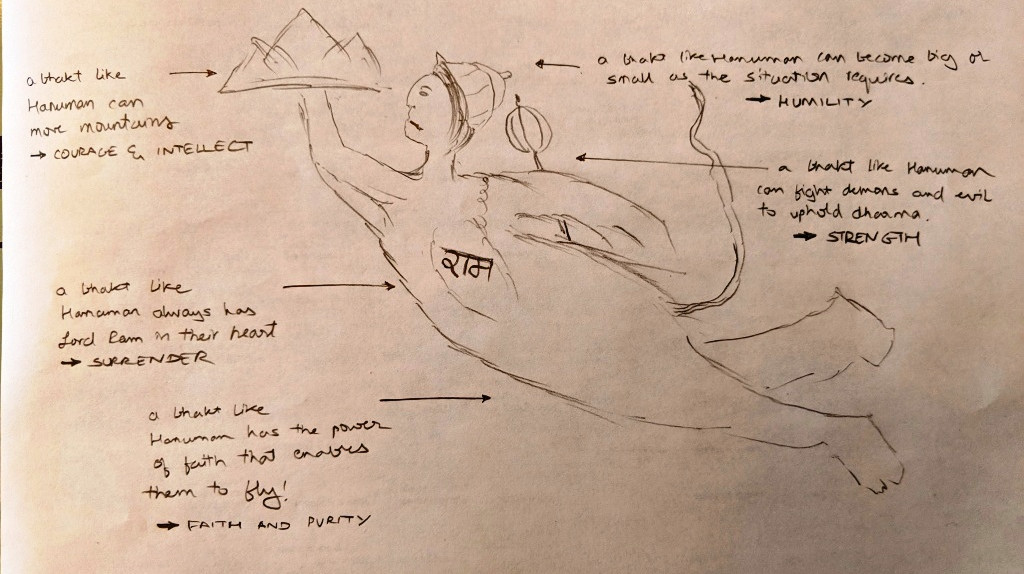 a bhakt like
Hanuman can
move mountains
→ COURAGE & INTELLECT
a bhakt like Hanuman can become big or
small as the situation requires.
→ HUMILITY
a bhakt like Hanuman
can fight demons and evil
to uphold dharma.
→ STRENGTH
राम
a bhakt like
Hanuman always has
Lord Ram in their heart
→ SURRENDER
a bhakt like
Hanuman has the power
of faith that enables
them to fly!
→ FAITH AND PURITY